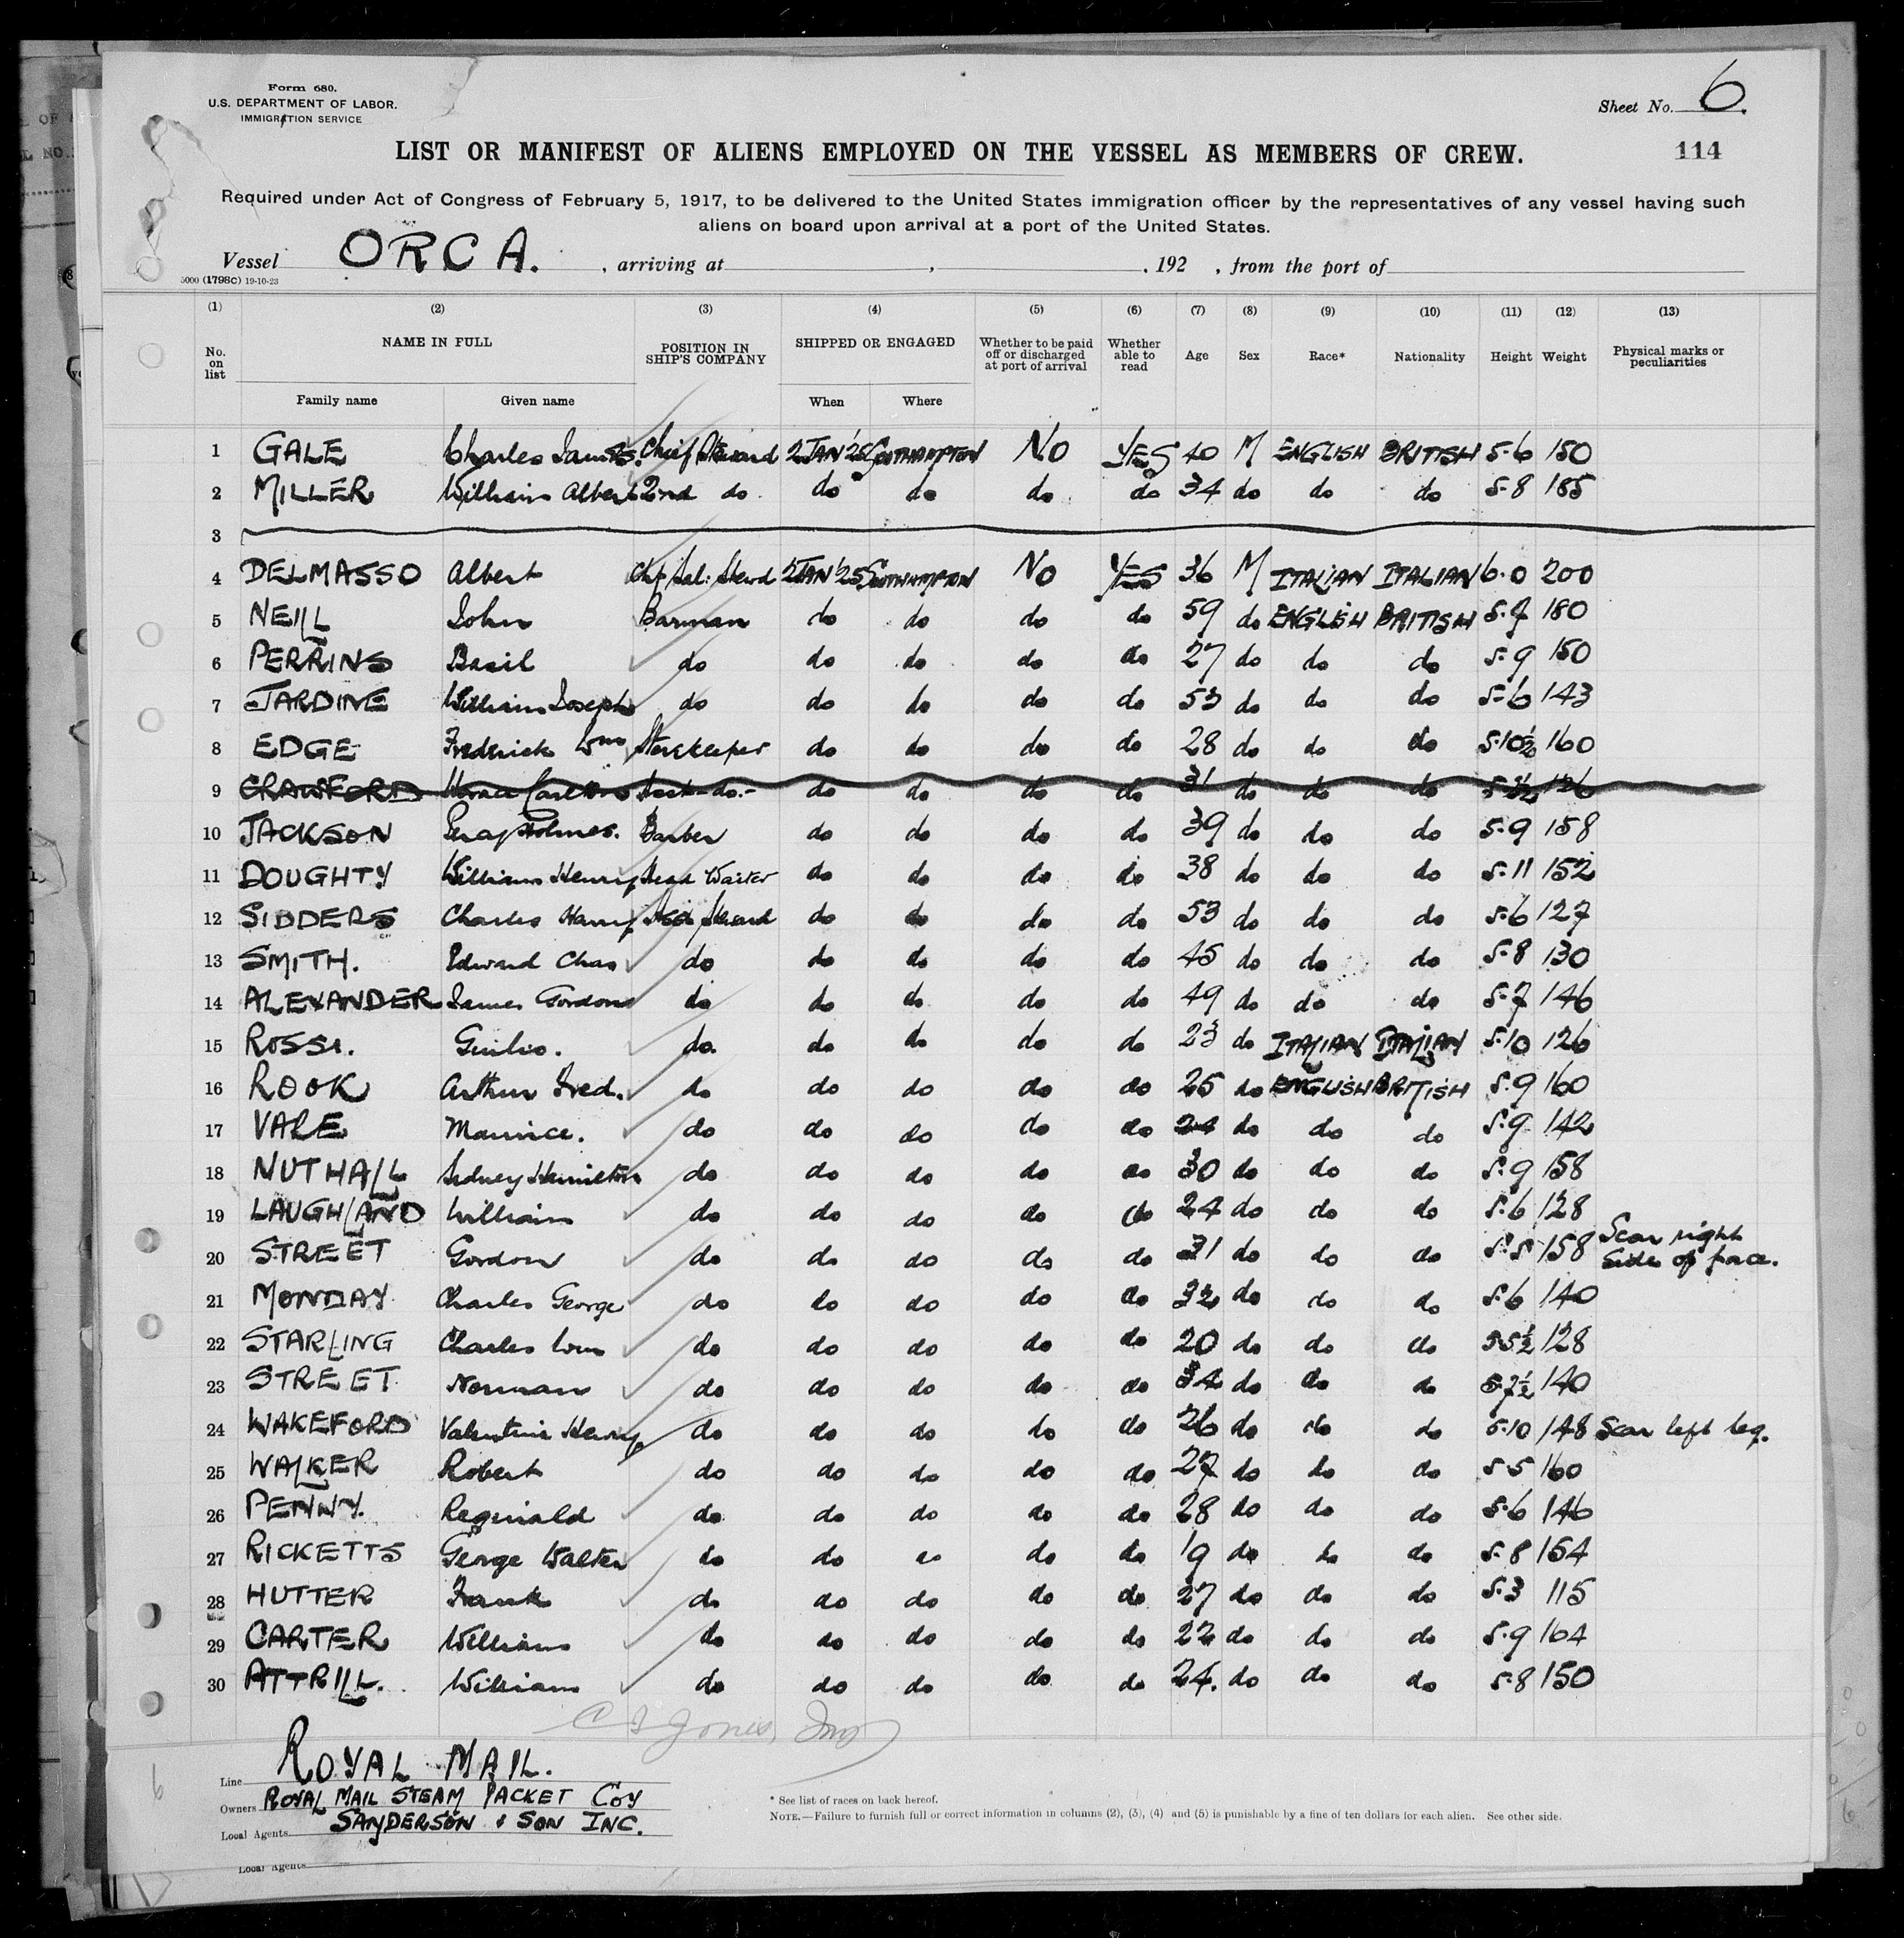 Form 680.
U.S. DEPARTMENT OF LABOR.
IMMIGRATION SERVICE
Sheet No. 6.
LIST OR MANIFEST OF ALIENS EMPLOYED ON THE VESSEL AS MEMBERS OF CREW.
114
Required under Act of Congress of February 5, 1917, to be delivered to the United States immigration officer by the representatives of any vessel having such
aliens on board upon arrival at a port of the United States.
Vessel ORCA. , arriving at , , 192 , from the port of
5000 (1798C) 19-10-23
(1) (2) (3) (4) (5) (6) (7) (8) (9) (10) (11) (12) (13)
No. on list NAME IN FULL POSITION IN SHIP'S COMPANY SHIPPED OR ENGAGED Whether to be paid off or discharged at port of arrival Whether able to read Age Sex Race* Nationality Height Weight Physical marks or peculiarities
Family name Given name When Where
1 GALE Charles James. Chief Steward 2 JAN '25 SOUTHAMPTON NO YES 40 M ENGLISH BRITISH 5-6 150
2 MILLER William Albert 2nd do do do do do 34 do do do 5-8 185
3
4 DELMASSO Albert Sal: Stewd 2 JAN '25 SOUTHAMPTON NO YES 36 M ITALIAN ITALIAN 6-0 200
5 NEILL John Barman do do do do 59 do ENGLISH BRITISH 5-7 180
6 PERRINS Basil do do do do do 27 do do do 5-9 150
7 JARDINE William Joseph do do do do do 53 do do do 5-6 143
8 EDGE Frederick Wm Storekeeper do do do do 28 do do do 5-10½ 160
9 CRAWFORD Horace Carlton Asst-do.- do do do do 31 do do do 126
10 JACKSON Percy Holmes. Barber do do do do 39 do do do 5-9 158
11 DOUGHTY William Henry Head Waiter do do do do 38 do do do 5-11 152
12 SIDDERS Charles Harry Asst Steward do do do do 53 do do do 5-6 127
13 SMITH. Edward Chas do do do do do 45 do do do 5-8 130
14 ALEXANDER James Gordon do do do do do 49 do do do 5-7 146
15 ROSSI. Guilio. do. do do do do 23 do ITALIAN ITALIAN 5-10 126
16 ROOK Arthur Fred. do do do do do 25 do ENGLISH BRITISH 5-9 160
17 VALE Maurice. do do do do do 24 do do do 5-9 142
18 NUTHALL Sidney Hamilton do do do do do 30 do do do 5-9 158
19 LAUGHLAND William do do do do do 24 do do do 5-6 128
20 STREET Gordon do do do do do 31 do do do 5-5 158 Scar right side of face.
21 MONDAY Charles George do do do do do 32 do do do 5-6 140
22 STARLING Charles Wm do do do do do 20 do do do 5-5½ 128
23 STREET Norman do do do do do 34 do do do 5-7½ 140
24 WAKEFORD Valentine Henry do do do do do 26 do do do 5-10 148 Scar left leg.
25 WALKER Robert do do do do do 27 do do do 5-5 160
26 PENNY. Reginald do do do do do 28 do do do 5-6 146
27 RICKETTS George Walter do do do do do 19 do do do 5-8 154
28 HUTTER Frank do do do do do 27 do do do 5-3 115
29 CARTER William do do do do do 22 do do do 5-9 164
30 ATTRILL. William do do do do do 24. do do do 5-8 150
Jones,
Line ROYAL MAIL.
Owners ROYAL MAIL STEAM PACKET COY
Local Agents SANDERSON & SON INC.
* See list of races on back hereof.
NOTE.—Failure to furnish full or correct information in columns (2), (3), (4) and (5) is punishable by a fine of ten dollars for each alien. See other side.
Local Agents
6